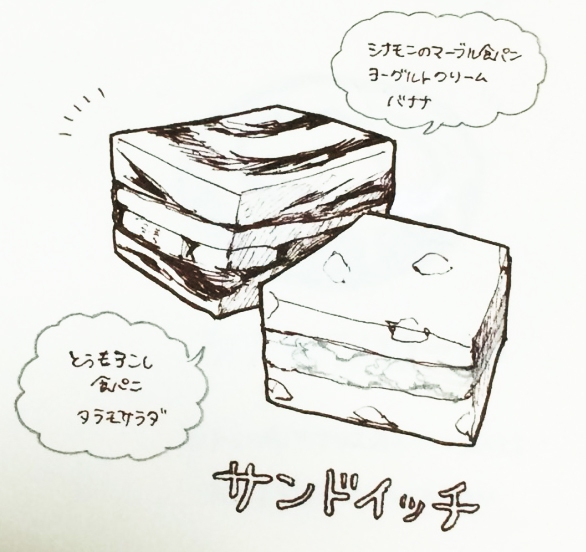 シナモンのマーブル食パン
ヨーグルトクリーム
バナナ
とうもろこし
食パン
タラモサラダ
サンドイッチ